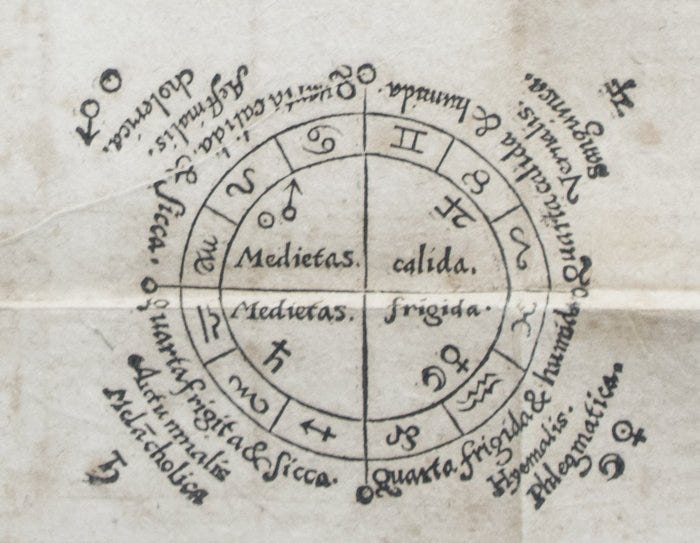 Quarta calida & sicca.
Æstiualis.
cholerica.
Quarta calida & humida.
Vernalis.
Sanguinea.
Medietas. calida.
Medietas. frigida.
Quarta frigita & sicca.
Autumnalis
Melācholica
Quarta frigida & humida
Hyemalis.
Phlegmatica.